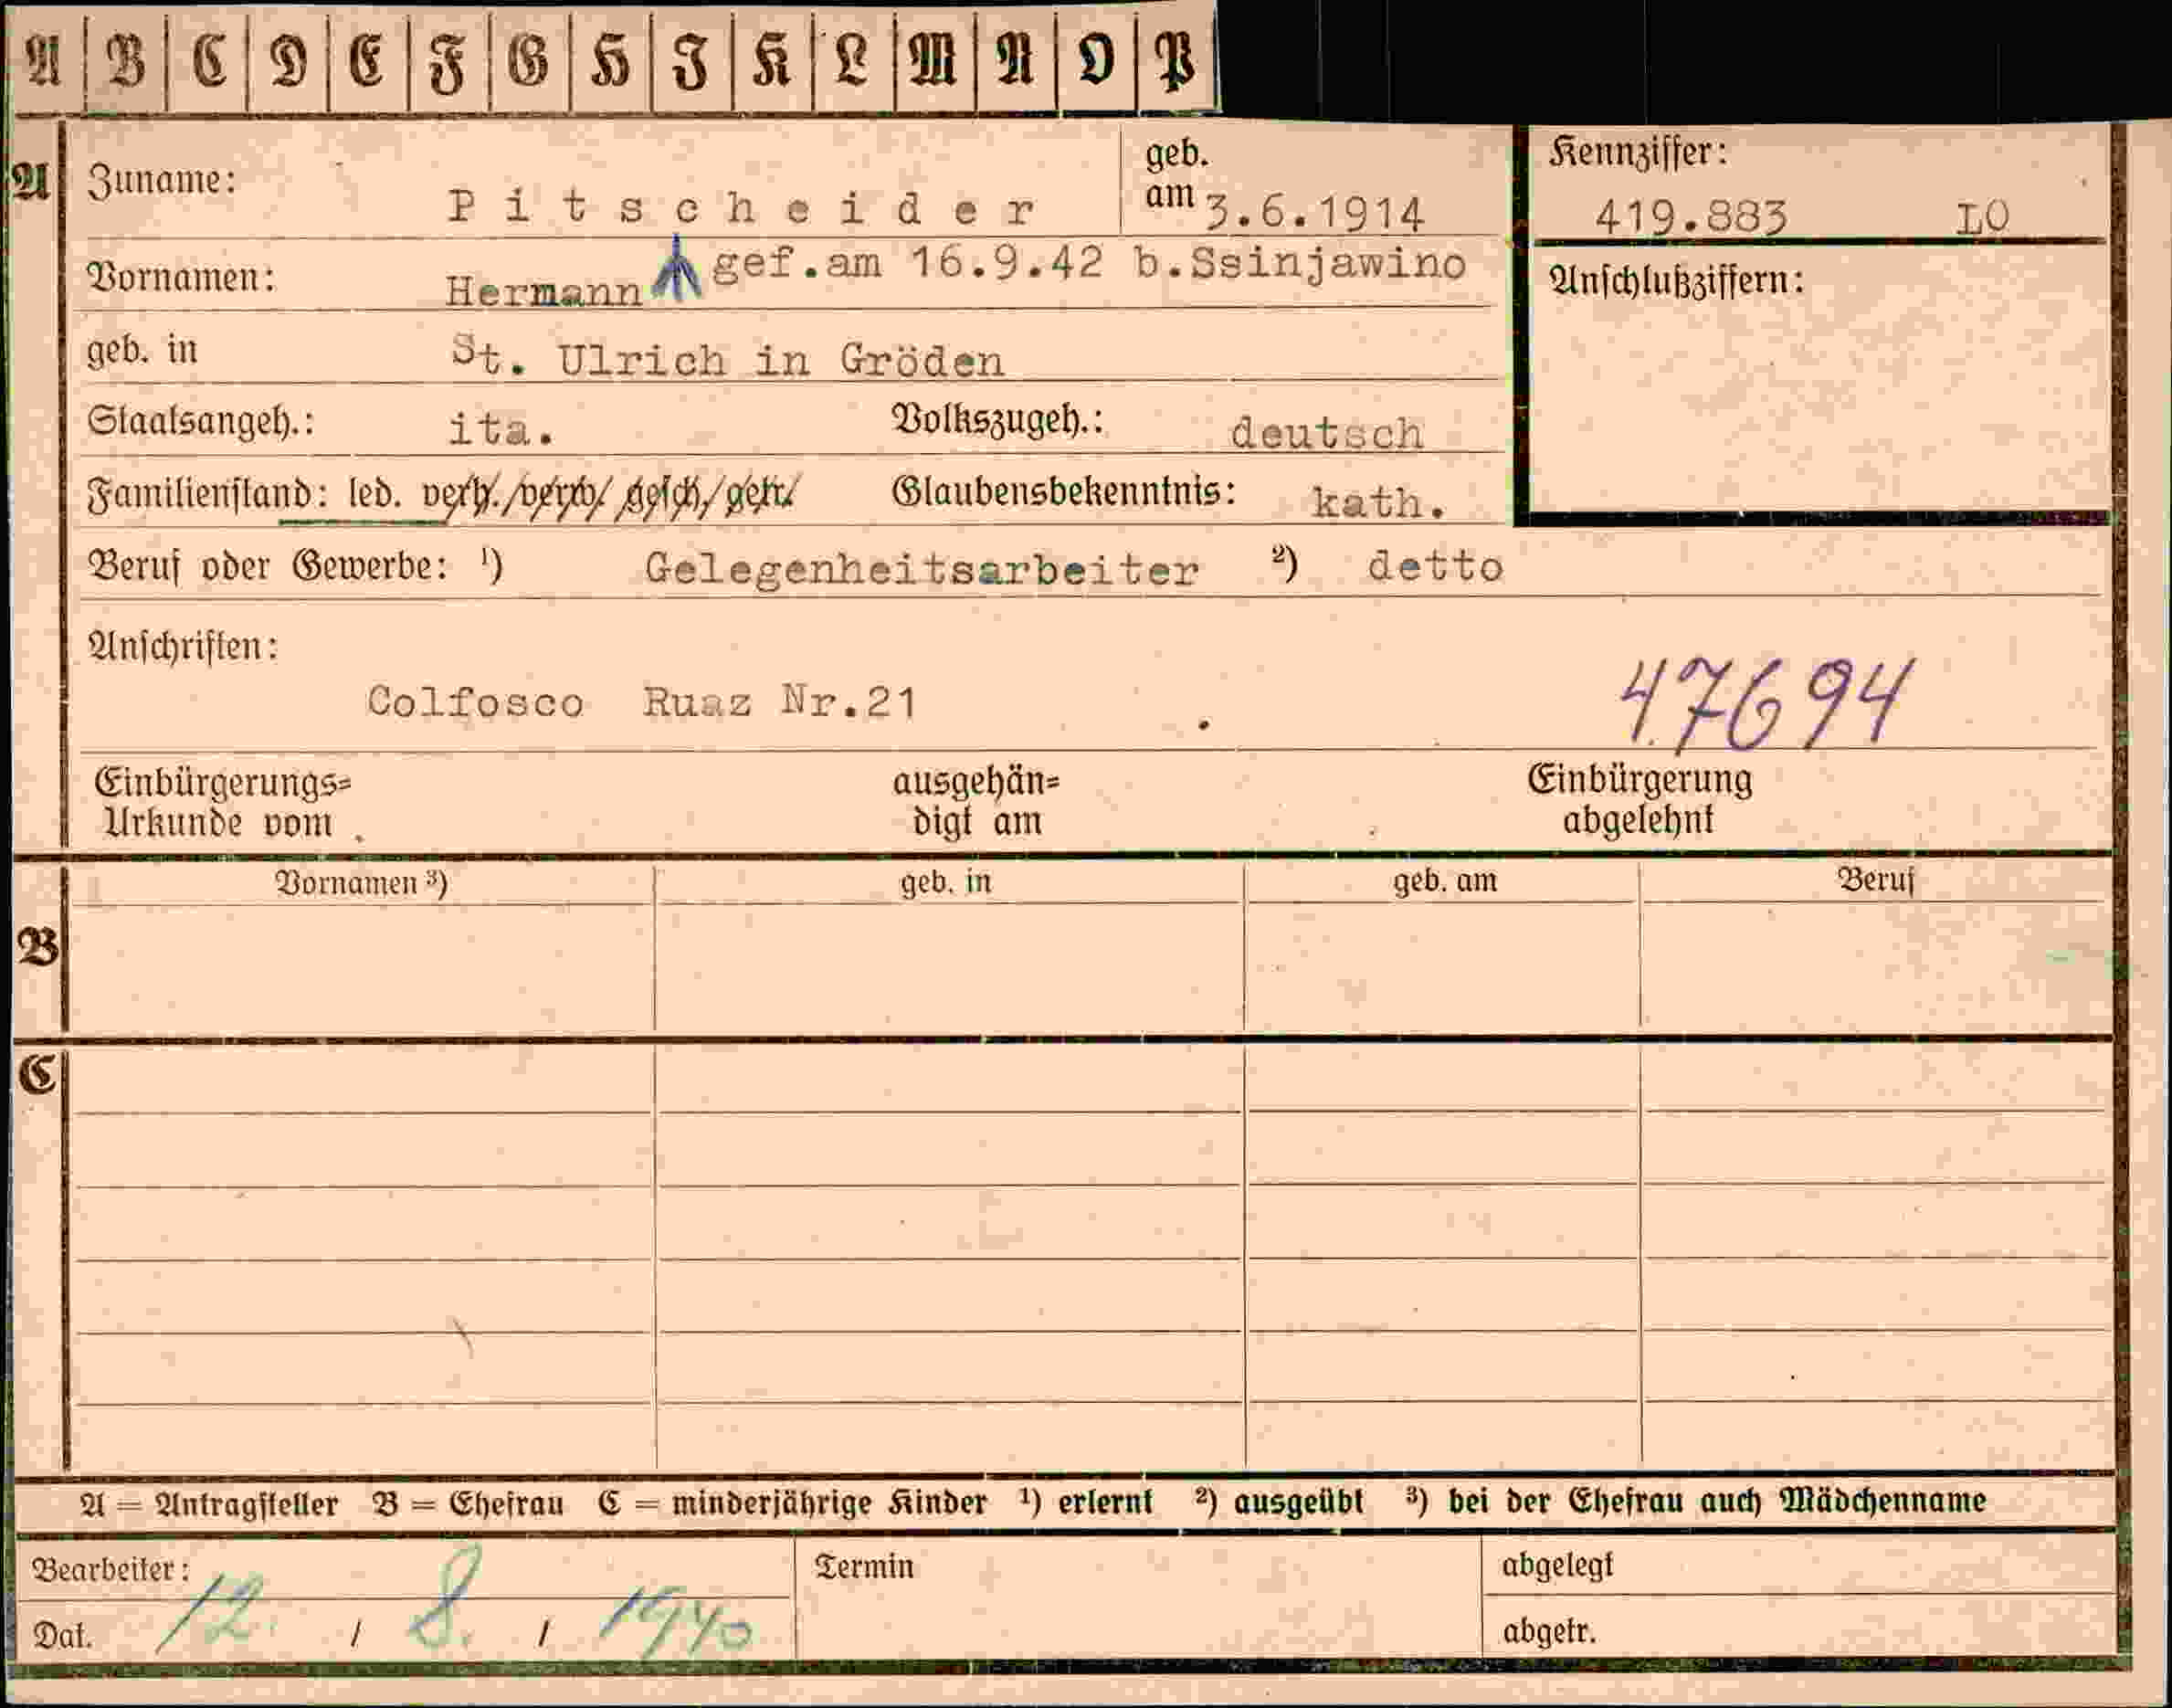 A B C D E F G H J K L M N O P
A Zuname: Pitscheider geb. am 3.6.1914 Kennziffer: 419.883 LO
Vornamen: Hermann gef.am 16.9.42 b.Ssinjawino Anschlußziffern:
geb. in St. Ulrich in Gröden
Staatsangeh.: ita. Volkszugeh.: deutsch
Familienstand: led. verh./verw/ gesch/getr/ Glaubensbekenntnis: kath.
Beruf oder Gewerbe: ¹) Gelegenheitsarbeiter ²) detto
Anschriften:
Colfosco Ruaz Nr.21 47694
Einbürgerungs= ausgehän= Einbürgerung
Urkunde vom digt am abgelehnt
Vornamen ³) geb. in geb. am Beruf
B
C
A = Antragsteller B = Ehefrau C = minderjährige Kinder ¹) erlernt ²) ausgeübt ³) bei der Ehefrau auch Mädchenname
Bearbeiter: Termin abgelegt
Dat. 12. / 8. / 1940 abgetr.